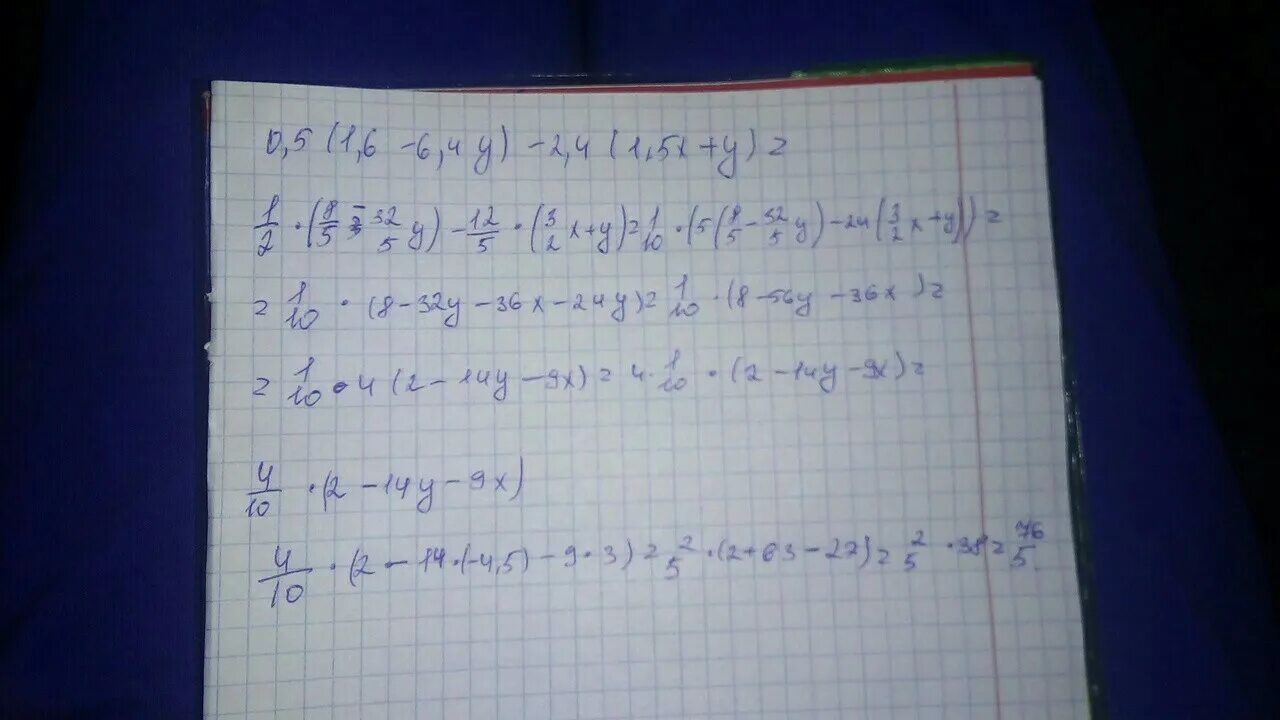 0,5 (1,6 - 6,4 y) - 2,4 (1,5x + y) =
1/2 · (8/5 - 32/5 y) - 12/5 · (3/2 x + y) = 1/10 · (5 (8/5 - 32/5 y) - 24 (3/2 x + y)) =
= 1/10 · (8 - 32y - 36x - 24y) = 1/10 · (8 - 56y - 36x) =
= 1/10 · 4 (2 - 14y - 9x) = 4 · 1/10 · (2 - 14y - 9x) =
4/10 · (2 - 14y - 9x)
4/10 · (2 - 14 · (-4,5) - 9 · 3) = 2/5 · (2 + 63 - 27) = 2/5 · 38 = 76/5.